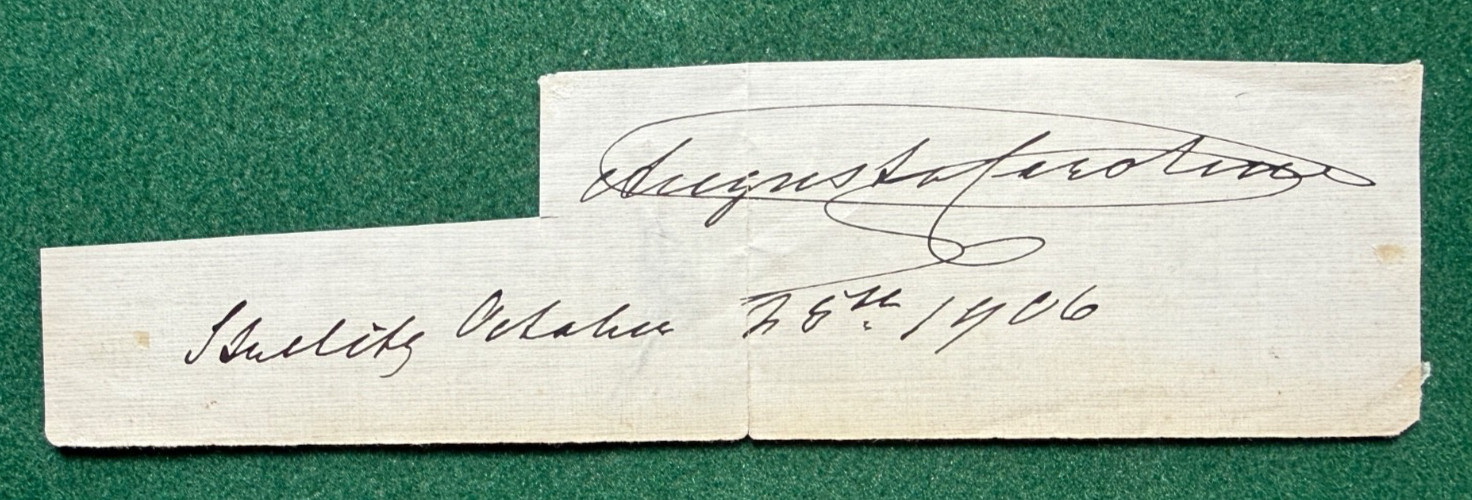 Augusta Caroline
Strelitz October 28th 1906